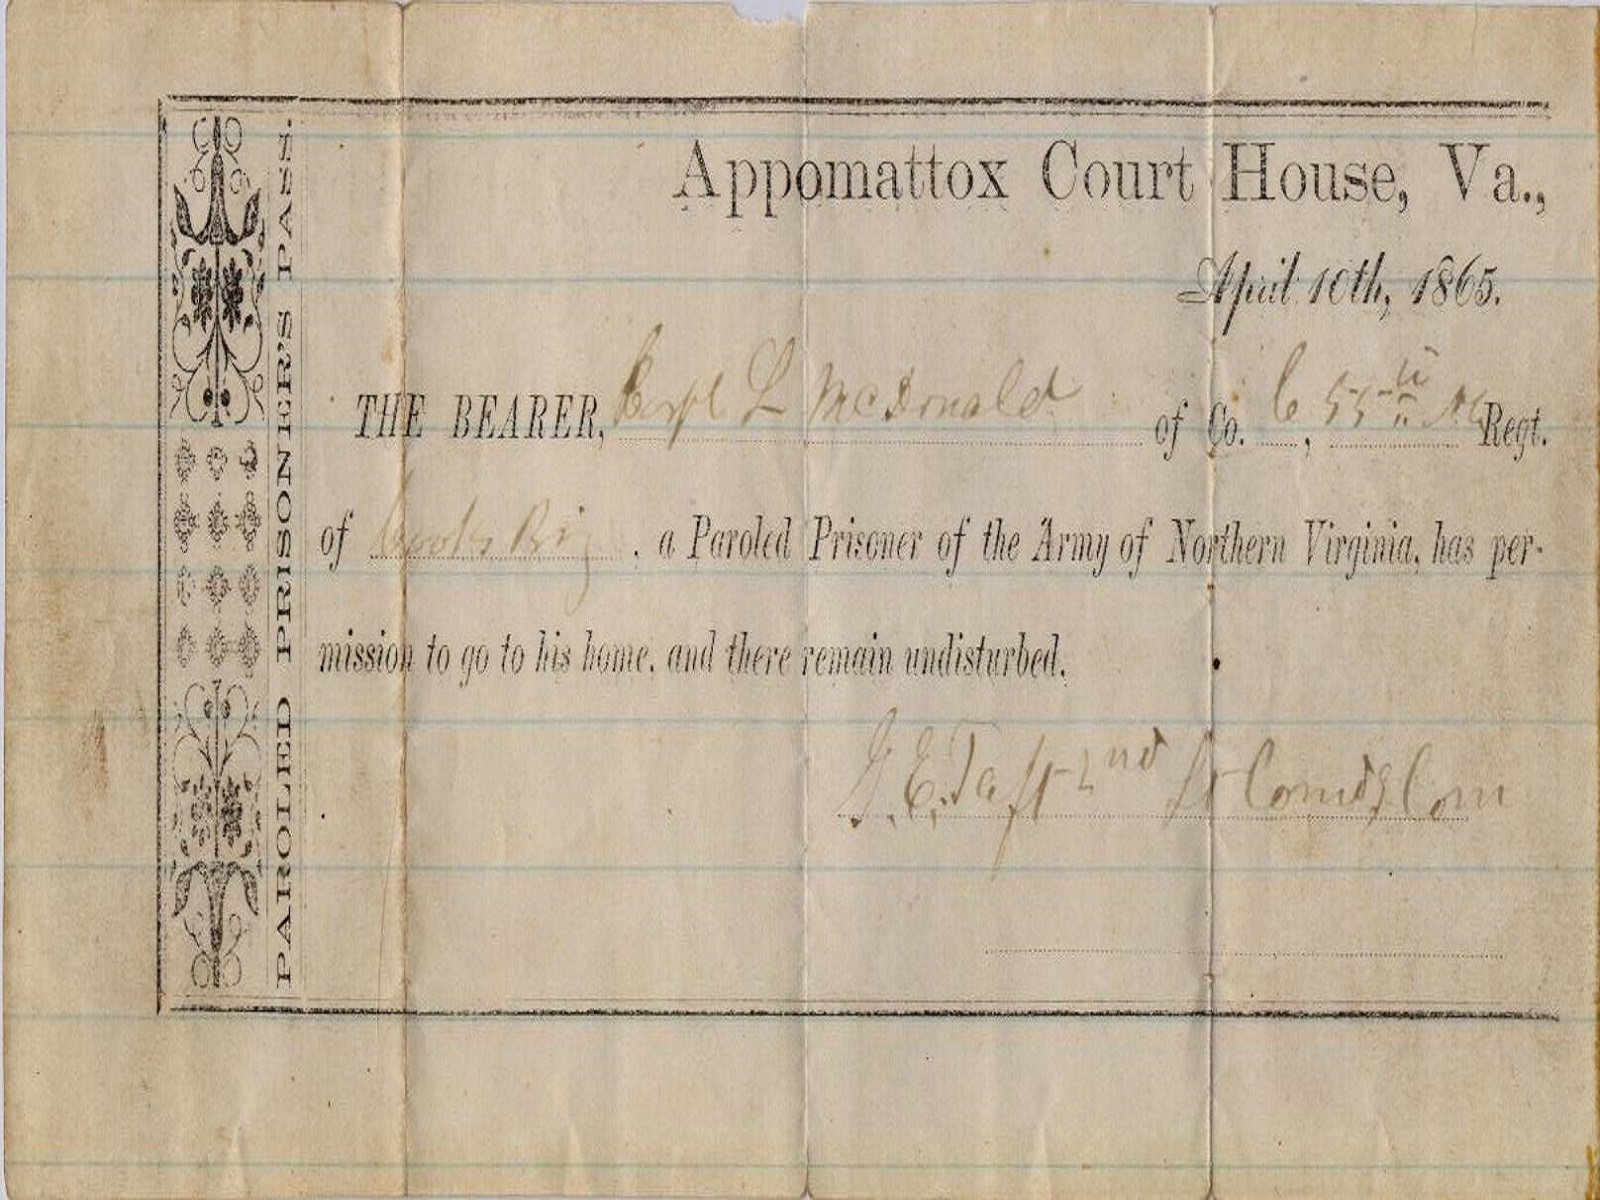 PAROLED PRISONER'S PASS.
Appomattox Court House, Va.,
April 10th, 1865.
THE BEARER, Corpl L McDonald of Co. C, 55th NC Regt.
of Cooks Brig, a Paroled Prisoner of the Army of Northern Virginia, has per-
mission to go to his home, and there remain undisturbed.
G. E. Taft 2nd Lt Comdg Com